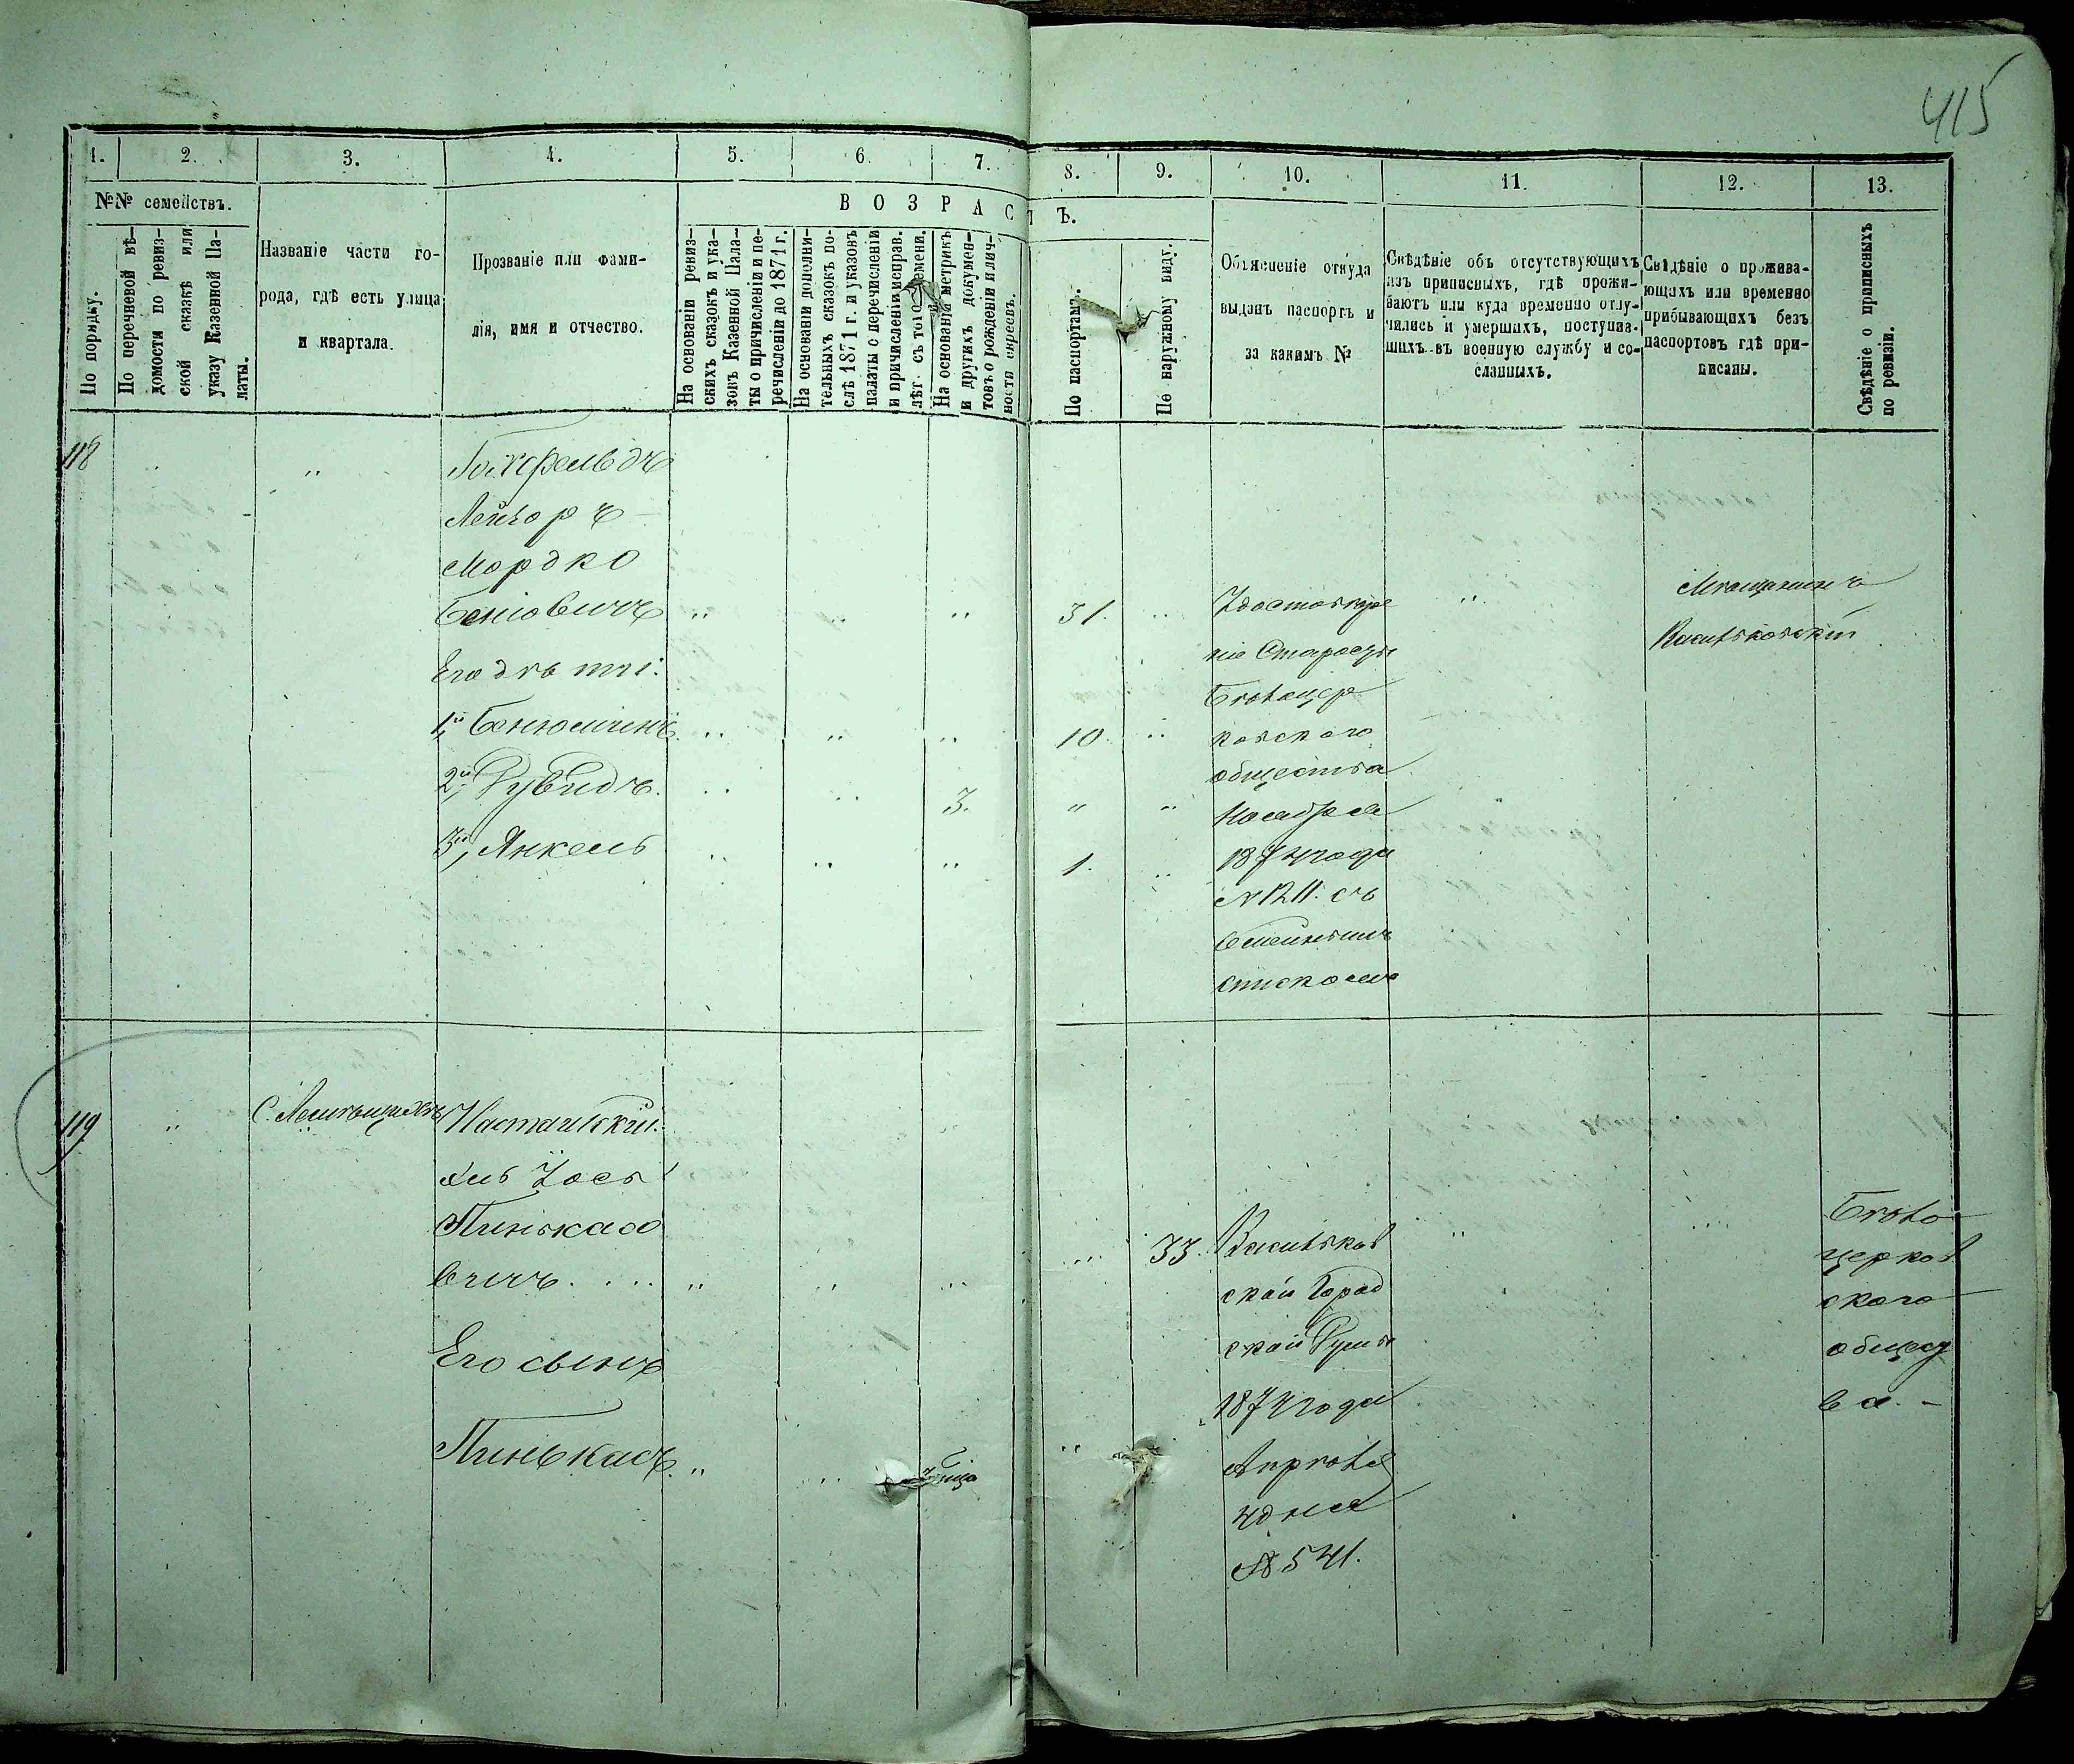 415
1. 2. 3. 4. 5. 6. 7. 8. 9. 10. 11. 12. 13.
№№ семействъ.
По порядку.
По перечневой вѣ-
домости по ревиз-
ской сказкѣ или
указу Казенной Па-
латы.
Названіе части го-
рода, гдѣ есть улица
и квартала.
Прозваніе или фами-
лія, имя и отчество.
ВОЗРАСТЪ.
На основаніи ревиз-
скихъ сказокъ и ука-
зовъ Казенной Пала-
ты о причисленіи и пе-
речисленіи до 1871 г.
На основаніи дополни-
тельныхъ сказокъ по-
слѣ 1871 г. и указовъ
палаты о перечисленіи
и причисленіи исправ.
лѣт. съ того времени.
На основаніи метрикъ
и другихъ докумен-
товъ о рожденіи и лич-
ности евреевъ.
По паспортамъ.
По наружному виду.
Объясненіе откуда
выданъ паспортъ и
за какимъ №
Свѣдѣніе объ отсутствующихъ
изъ приписныхъ, гдѣ прожи-
ваютъ или куда временно отлу-
чились и умершихъ, поступив-
шихъ въ военную службу и со-
сланныхъ.
Свѣдѣніе о прожива-
ющихъ или временно
прибывающихъ безъ
паспортовъ гдѣ при-
писаны.
Свѣдѣніе о приписныхъ
по ревизіи.
118
Лейзоръ
Мордко
Беніовичъ 31.
Его дѣти:
1й, Беніоминъ 10
2й, Рувидъ. 3.
3й, Янкель 1.
Удостовѣре
ніе Старосты
Бѣлоцер
ковскаго
общества
Ноября
1874 года
№ 1211. съ
Семейнымъ
спискомъ
Мѣщанинъ
Васильковскій
119
Пинькасо
вичъ 33.
Его сынъ
Пинькасъ
Васильков
ской Город
ской Думы
1874 года
Апрѣля
4 дня
№ 541.
Бѣло
церков
скаго
общест
ва. -